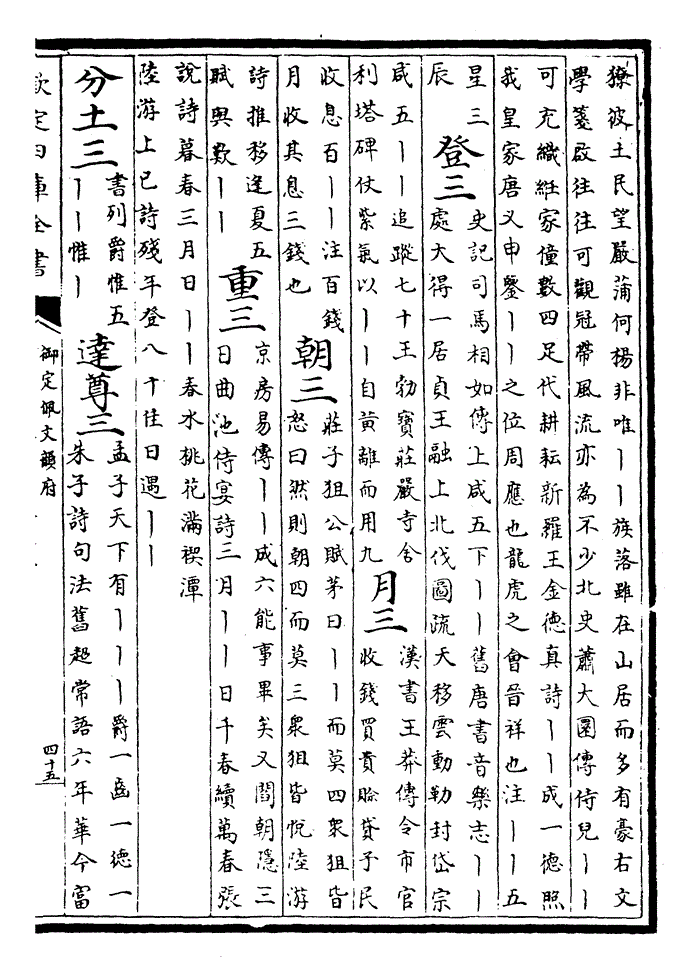 獠彼土民望嚴蒲何楊非唯丨丨族落雖在山居而多有豪右文
學箋啟往往可觀冠帶風流亦為不少北史蕭大圜傳侍兒丨丨
可充織紝家僮數四足代耕耘新羅王金德真詩丨丨成一德照
我皇家唐乂申鑒丨丨之位周應也龍虎之會晉祥也注丨丨五
星三
辰
登三
史記司馬相如傳上咸五下丨丨舊唐書音樂志丨丨
處大得一居貞王融上北伐圖疏天移雲動勒封岱宗
咸五丨丨追蹤七十王勃寶莊嚴寺舍
利塔碑仗紫氣以丨丨自黃離而用九
月三
漢書王莽傳令市官
收錢買賣賒貸予民
收息百丨丨注百錢
月收其息三錢也
朝三
莊子狙公賦茅曰丨丨而莫四衆狙皆
怒曰然則朝四而莫三衆狙皆悅陸游
詩推移逢夏五
賦與歎丨丨
重三
京房易傳丨丨成六能事畢矣又閻朝隱三
日曲池侍宴詩三月丨丨日千春續萬春張
說詩暮春三月日丨丨春水桃花滿禊潭
陸游上巳詩殘年登八十佳日遇丨丨
分土三
書列爵惟五
丨丨惟丨
達尊三
孟子天下有丨丨丨爵一齒一德一
朱子詩句法舊超常語六年華今富
欽定四庫全書
御定佩文韻府
四十五